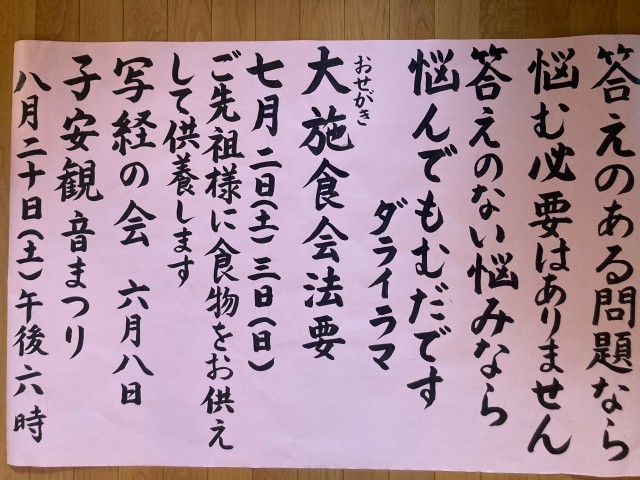 答えのある問題なら
悩む必要はありません
答えのない悩みなら
悩んでもむだです
ダライラマ
おせがき
大施食会法要
七月二日(土)三日(日)
ご先祖様に食物をお供え
して供養します
写経の会 六月八日
子安観音まつり
八月二十日(土)午後六時